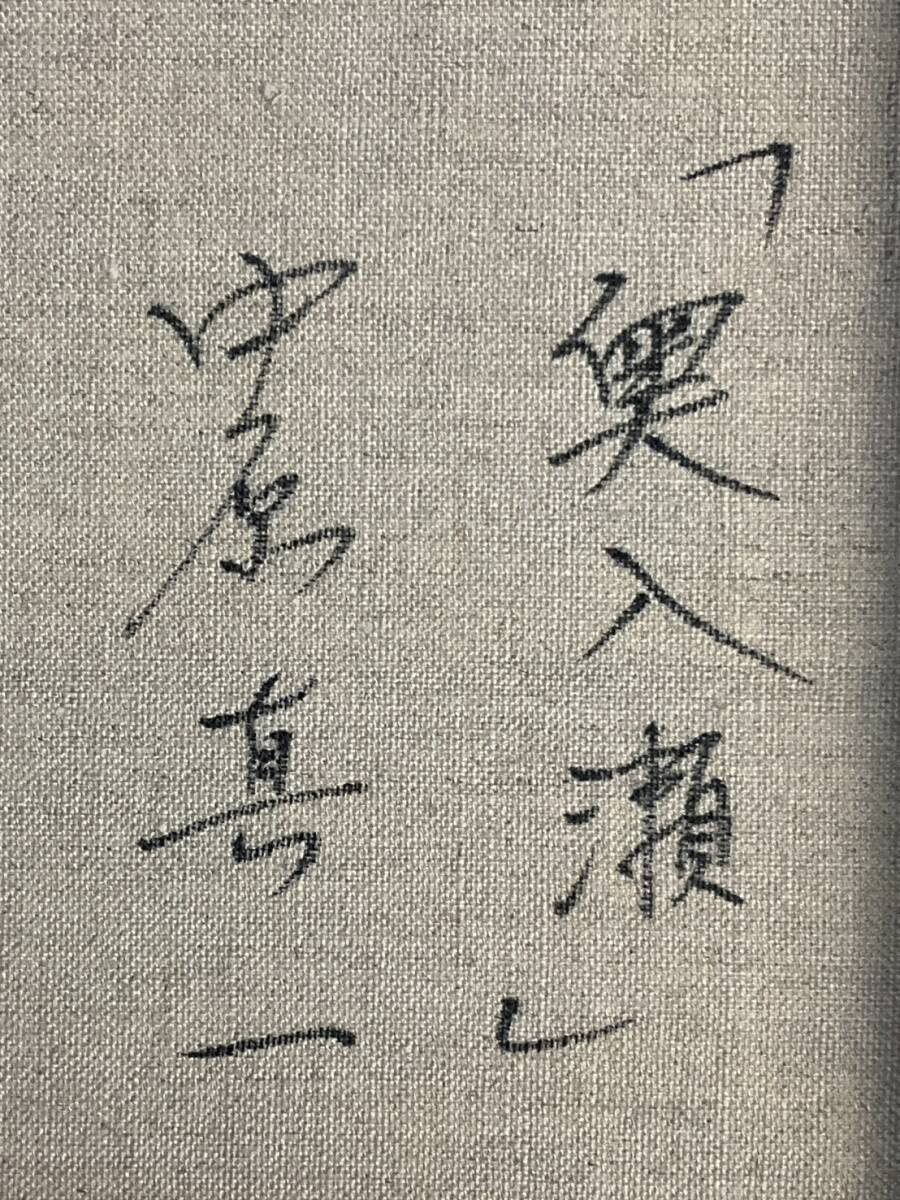 「奥入瀬」
中原真一